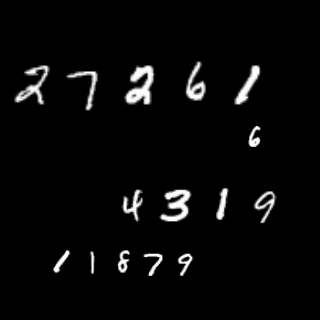 27261
6
4319
11879